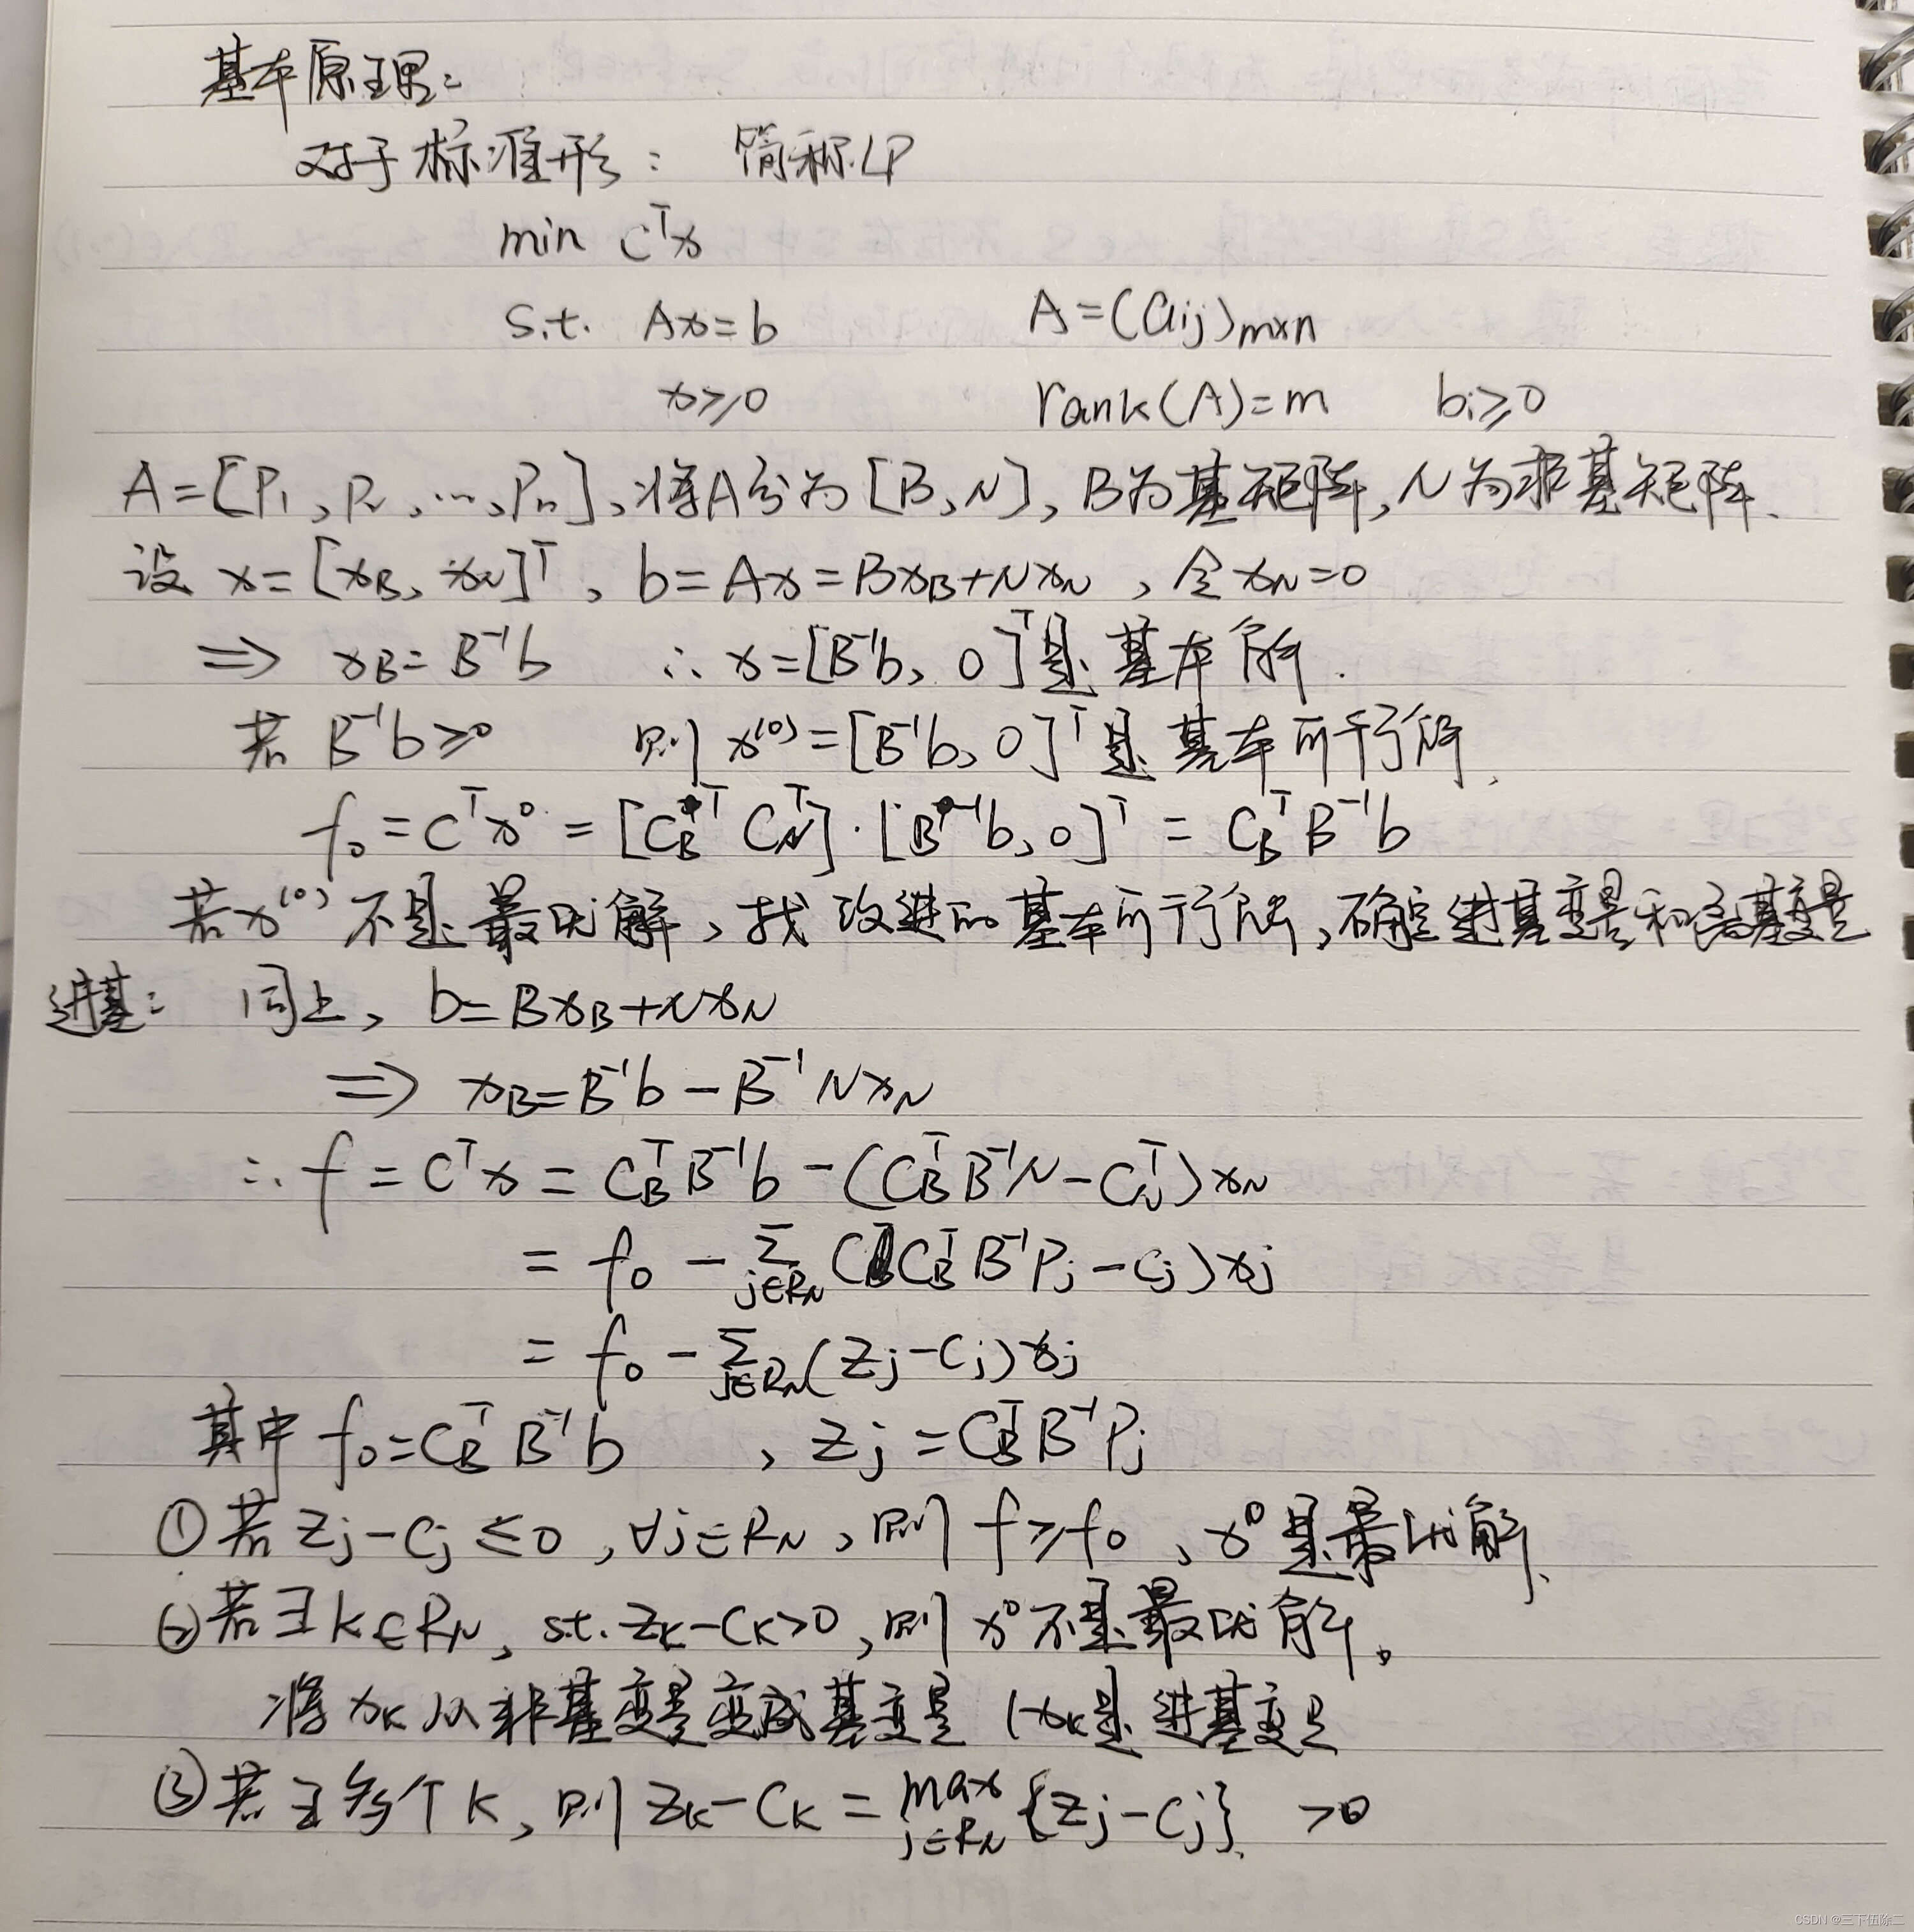 基本原理:
对于标准形: 简称LP
min Cᵀx
s.t. Ax=b A=(aij)m×n
x≥0 rank(A)=m bi≥0
A=[P₁, P₂, …, Pn], 将A分为[B, N], B为基矩阵, N为非基矩阵.
设 x=[xB, xN]ᵀ, b=Ax=BxB+NxN, 令xN=0
⇒ xB=B⁻¹b ∴ x=[B⁻¹b, 0]ᵀ是基本解.
若 B⁻¹b≥0 则 x⁽⁰⁾=[B⁻¹b, 0]ᵀ是基本可行解.
f₀=Cᵀx⁰=[CBᵀ CNᵀ]·[B⁻¹b, 0]ᵀ=CBᵀB⁻¹b
若x⁽⁰⁾不是最优解, 找改进的基本可行解, 确定进基变量和离基变量
进基: 同上, b=BxB+NxN
⇒ xB=B⁻¹b-B⁻¹NxN
∴ f=Cᵀx=CBᵀB⁻¹b-(CBᵀB⁻¹N-CNᵀ)xN
=f₀-∑j∈RN(CBᵀB⁻¹Pj-Cj)xj
=f₀-∑j∈RN(Zj-Cj)xj
其中 f₀=CBᵀB⁻¹b , Zj=CBᵀB⁻¹Pj
①若 Zj-Cj≤0, ∀j∈RN, 则 f≥f₀, x⁰是最优解.
②若∃k∈RN, s.t. Zk-Ck>0, 则 x⁰不是最优解。
将xk从非基变量变成基变量 (xk是进基变量
③若∃多个k, 则 Zk-Ck=max j∈RN {Zj-Cj} >0
CSDN @三下伍除二